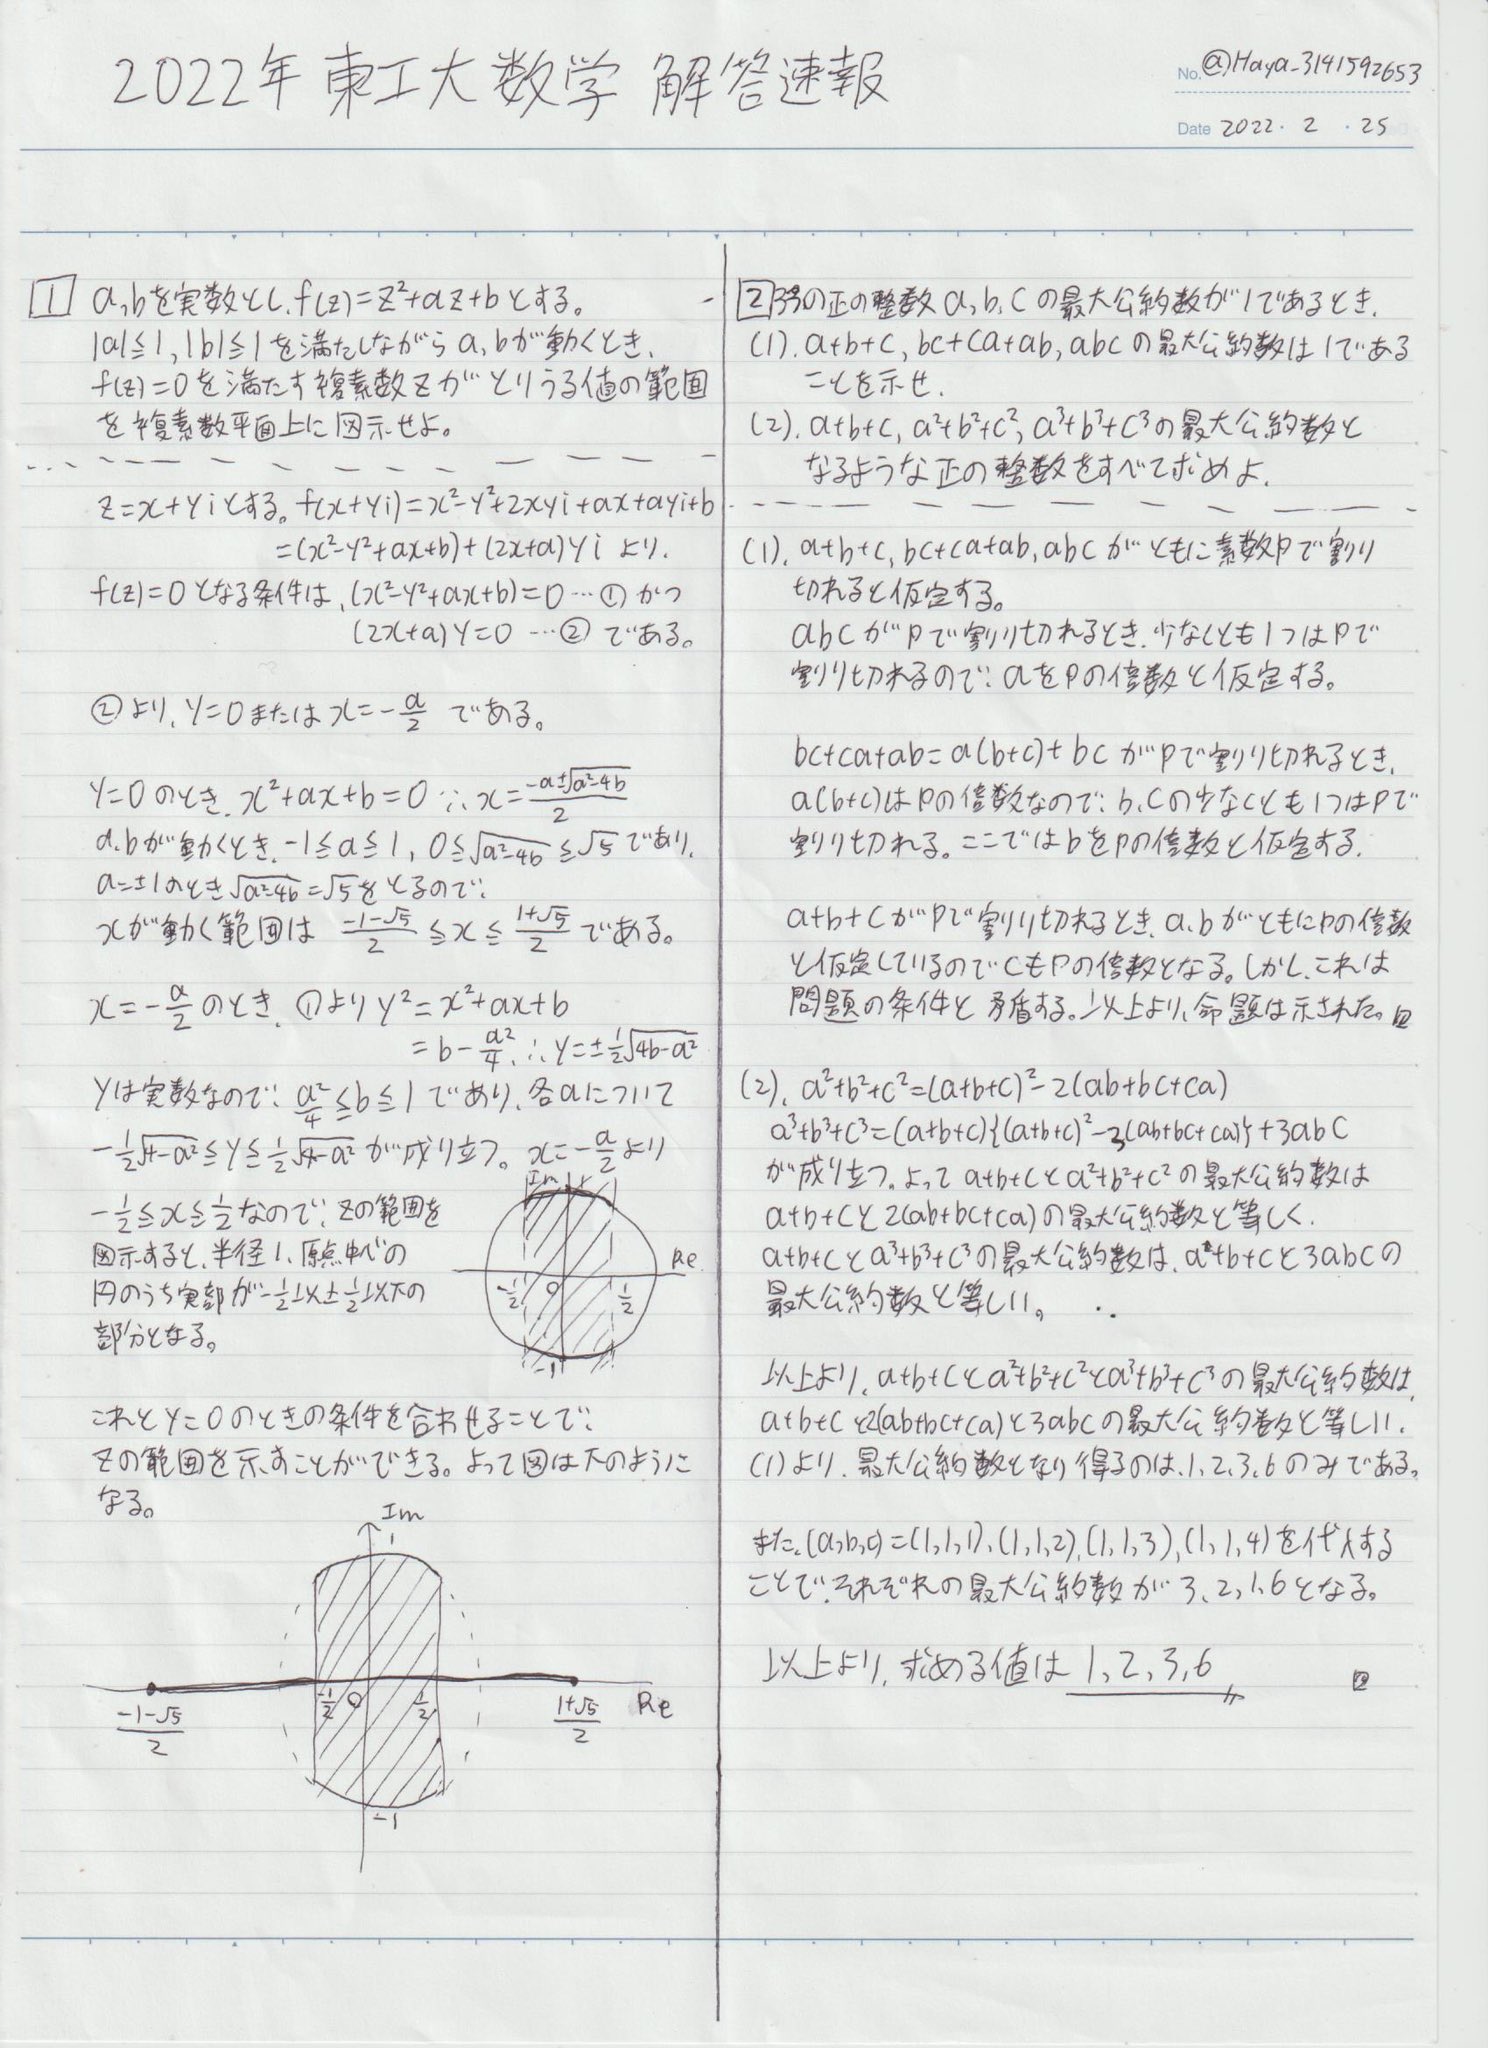 2022年 東工大 数学 解答速報
No. @Haya_3141592653
Date 2022・2・25
1 a,bを実数とし、f(z)=z²+az+bとする。
|a|≦1, |b|≦1を満たしながらa,bが動くとき、
f(z)=0を満たす複素数zがとりうる値の範囲
を複素数平面上に図示せよ。
z=x+yiとする。f(x+yi)=x²-y²+2xyi+ax+ayi+b
=(x²-y²+ax+b)+(2x+a)yi より、
f(z)=0となる条件は、(x²-y²+ax+b)=0…① かつ
(2x+a)y=0 …② である。
②より、y=0またはx=-a/2 である。
y=0のとき、x²+ax+b=0 ∴x=(-a±√(a²-4b))/2
a,bが動くとき、-1≦a≦1, 0≦√(a²-4b)≦√5であり、
a=±1のとき√(a²-4b)=√5をとるので、
xが動く範囲は (-1-√5)/2 ≦x≦ (1+√5)/2 である。
x=-a/2のとき、①より y²=x²+ax+b
=b-a²/4, ∴y=±1/2√(4b-a²)
yは実数なので、a²/4≦b≦1であり、各aについて
-1/2√(4-a²)≦y≦1/2√(4-a²)が成り立つ。x=-a/2より
-1/2≦x≦1/2なので、zの範囲を
図示すると、半径1、原点中心の
円のうち実部が-1/2以上1/2以下の
部分となる。
Im
1
Re
-1/2 0 1/2
-1
これとy=0のときの条件を合わせることで、
zの範囲を示すことができる。よって図は下のように
なる。
Im
1
(-1-√5)/2 -1/2 0 1/2 (1+√5)/2 Re
-1
2 3つの正の整数a,b,cの最大公約数が1であるとき、
(1). a+b+c, bc+ca+ab, abcの最大公約数は1である
ことを示せ.
(2). a+b+c, a²+b²+c², a³+b³+c³の最大公約数と
なるような正の整数をすべて求めよ.
(1). a+b+c, bc+ca+ab, abcがともに素数pで割り
切れると仮定する。
abcがpで割り切れるとき、少なくとも1つはpで
割り切れるので、aをpの倍数と仮定する。
bc+ca+ab=a(b+c)+bcがpで割り切れるとき、
a(b+c)はpの倍数なので、b,cの少なくとも1つはpで
割り切れる。ここではbをpの倍数と仮定する.
a+b+cがpで割り切れるとき、a,bがともにpの倍数
と仮定しているのでcもpの倍数となる。しかし、これは
問題の条件と矛盾する。以上より、命題は示された。
(2). a²+b²+c²=(a+b+c)²-2(ab+bc+ca)
a³+b³+c³=(a+b+c){(a+b+c)²-3(ab+bc+ca)}+3abc
が成り立つ。よってa+b+cとa²+b²+c²の最大公約数は
a+b+cと2(ab+bc+ca)の最大公約数と等しく、
a+b+cとa³+b³+c³の最大公約数は、a+b+cと3abcの
最大公約数と等しい。
以上より、a+b+cとa²+b²+c²とa³+b³+c³の最大公約数は、
a+b+cと2(ab+bc+ca)と3abcの最大公約数と等しい.
(1)より、最大公約数となり得るのは、1,2,3,6のみである。
また、(a,b,c)=(1,1,1),(1,1,2),(1,1,3),(1,1,4)を代入する
ことで、それぞれの最大公約数が3,2,1,6となる。
以上より、求める値は 1,2,3,6